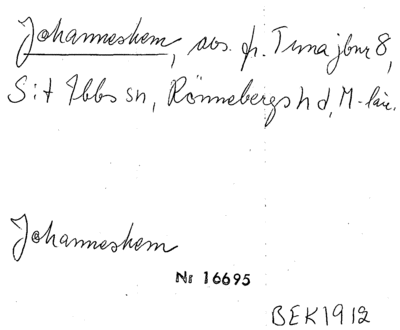 Johanneshem, avs. fr. Tuna jbnr 8,
S:t Ibbs sn, Rönnebergs hd, M-län.
Johanneshem
Nr 16695
BEK 1912